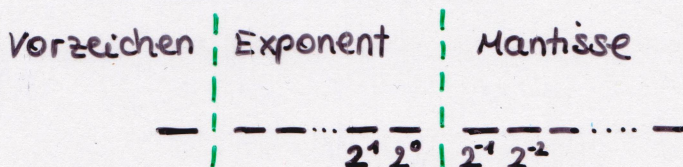 Vorzeichen Exponent Mantisse
2¹ 2⁰ 2⁻¹ 2⁻²